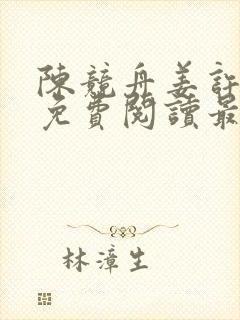 陳競舟姜訢
免費閱讀最
林漳生